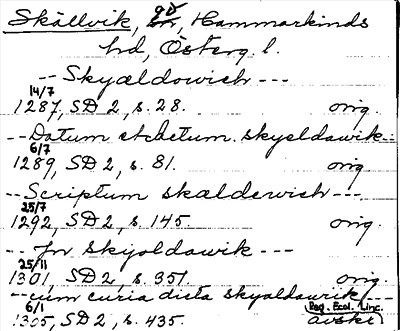 Skällvik, gd, Hammarkinds
hd, Österg. l.
-- Skyældowich ---
14/7
1287, SD 2, s. 28. orig.
-- Datum et actum. skyeldawik --
6/7
1289, SD 2, s. 81. orig.
-- Scriptum skælderwich ---
25/7
1292, SD 2, s. 145. orig.
-- Jn skyoldawik ---
25/11
1301, SD 2, s. 351. orig.
-- cum curia dicta skyaldawik ---
6/1 Reg. Eccl. Linc.
1305, SD 2, s. 435. avskr.